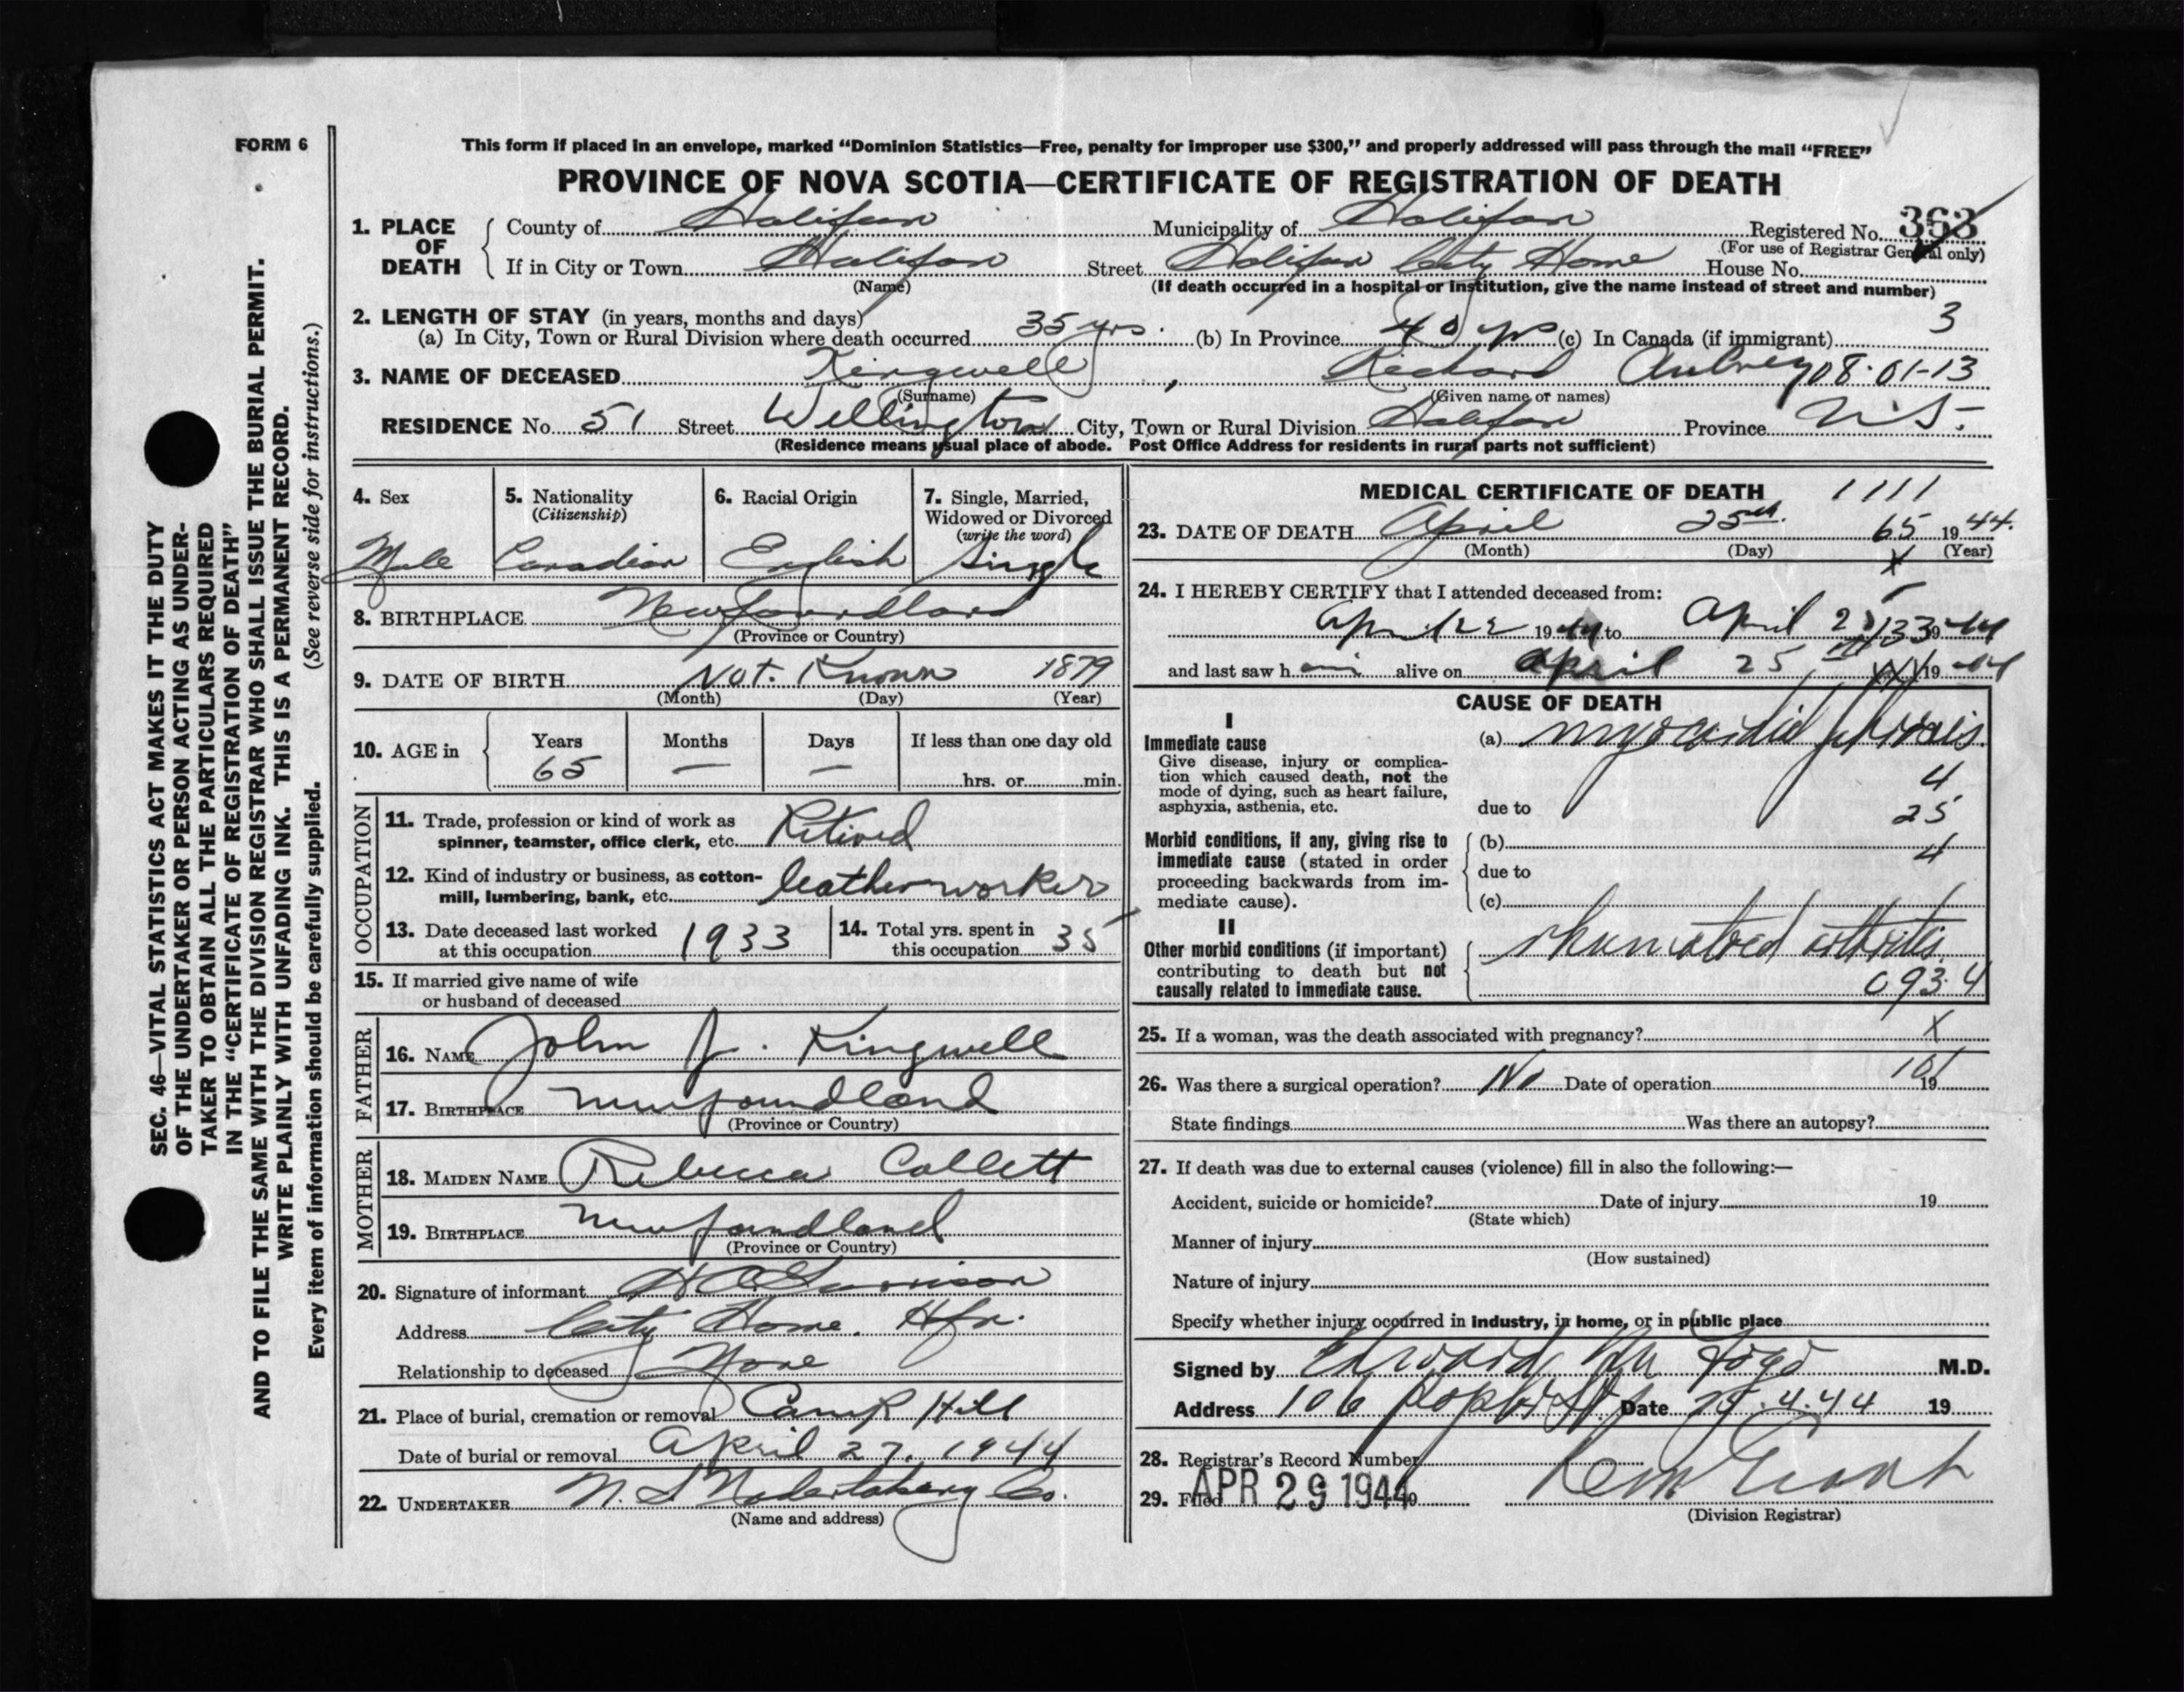 FORM 6
This form if placed in an envelope, marked “Dominion Statistics—Free, penalty for improper use $300,” and properly addressed will pass through the mail “FREE”
PROVINCE OF NOVA SCOTIA—CERTIFICATE OF REGISTRATION OF DEATH
1. PLACE OF DEATH
County of Halifax Municipality of Halifax Registered No. 363
(For use of Registrar General only)
If in City or Town Halifax Street Halifax City Home House No.
(Name) (If death occurred in a hospital or institution, give the name instead of street and number)
2. LENGTH OF STAY (in years, months and days)
(a) In City, Town or Rural Division where death occurred 35 yrs. (b) In Province 40 yrs (c) In Canada (if immigrant) 3
3. NAME OF DECEASED Kingwell, Richard Aubrey 08-01-13
(Surname) (Given name or names)
RESIDENCE No. 51 Street Wellington City, Town or Rural Division Halifax Province N.S.
(Residence means usual place of abode. Post Office Address for residents in rural parts not sufficient)
4. Sex
Male
5. Nationality
(Citizenship)
Canadian
6. Racial Origin
English
7. Single, Married,
Widowed or Divorced
(write the word)
Single
8. BIRTHPLACE Newfoundland
(Province or Country)
9. DATE OF BIRTH Not Known 1879
(Month) (Day) (Year)
10. AGE in
Years Months Days If less than one day old
65 — — hrs. or min.
OCCUPATION
11. Trade, profession or kind of work as
spinner, teamster, office clerk, etc. Retired
12. Kind of industry or business, as cotton-
mill, lumbering, bank, etc. leather worker
13. Date deceased last worked
at this occupation 1933
14. Total yrs. spent in
this occupation 35
15. If married give name of wife
or husband of deceased
FATHER
16. NAME John J. Kingwell
17. BIRTHPLACE Newfoundland
(Province or Country)
MOTHER
18. MAIDEN NAME Rebecca Collett
19. BIRTHPLACE Newfoundland
(Province or Country)
20. Signature of informant
Address City Home. Hfx.
Relationship to deceased None
21. Place of burial, cremation or removal Camp Hill
Date of burial or removal April 27, 1944
22. UNDERTAKER N. S. Undertaking Co.
(Name and address)
MEDICAL CERTIFICATE OF DEATH 1111
23. DATE OF DEATH April 25th 65 1944.
(Month) (Day) X (Year)
24. I HEREBY CERTIFY that I attended deceased from:
April 22 1944 to April 25 133 1944
and last saw him alive on April 25 1944
CAUSE OF DEATH
I
Immediate cause
Give disease, injury or complica-
tion which caused death, not the
mode of dying, such as heart failure,
asphyxia, asthenia, etc.
(a) myocardial fibrosis.
4
due to 25
Morbid conditions, if any, giving rise to
immediate cause (stated in order
proceeding backwards from im-
mediate cause).
(b) 4
due to
(c)
II
Other morbid conditions (if important)
contributing to death but not
causally related to immediate cause.
rheumatoid arthritis.
093.4
25. If a woman, was the death associated with pregnancy? X
26. Was there a surgical operation? No Date of operation 19
State findings Was there an autopsy?
27. If death was due to external causes (violence) fill in also the following:—
Accident, suicide or homicide? Date of injury 19
(State which)
Manner of injury
(How sustained)
Nature of injury
Specify whether injury occurred in industry, in home, or in public place
Signed by Edward M.D.
Address 106 Date 25.4.44 19
28. Registrar's Record Number
29. Filed APR 29 1944
(Division Registrar)
SEC. 46—VITAL STATISTICS ACT MAKES IT THE DUTY
OF THE UNDERTAKER OR PERSON ACTING AS UNDER-
TAKER TO OBTAIN ALL THE PARTICULARS REQUIRED
IN THE “CERTIFICATE OF REGISTRATION OF DEATH”
AND TO FILE THE SAME WITH THE DIVISION REGISTRAR WHO SHALL ISSUE THE BURIAL PERMIT.
WRITE PLAINLY WITH UNFADING INK. THIS IS A PERMANENT RECORD.
Every item of information should be carefully supplied. (See reverse side for instructions.)